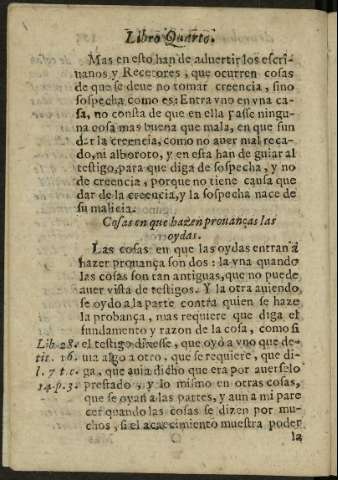 Libro Quarto.
Mas en esto han de aduertir los escri-
uanos y Recetores, que ocurren cosas
de que se deue no tomar creencia, sino
sospecha como es: Entra vno en vna ca-
sa, no consta de que en ella passe ningu-
na cosa mas buena que mala, en que fun
dar la creencia, como no auer mal reca-
do, ni alboroto, y en esta han de guiar al
testigo, para que diga de sospecha, y no
de creencia, porque no tiene causa que
dar de la creencia, y la sospecha nace de
su malicia.
Cosas en que hazen prouanças las
oydas.
Las cosas en que las oydas entran a
hazer prouança son dos: la vna quando
las cosas son tan antiguas, que no puede
auer vista de testigos. Y la otra auiendo
se oydo a la parte contra quien se haze
la probança, mas requiere que diga el
fundamento y razon de la cosa, como si
Lib. 28. el testigo dixesse, que oyó a vno que de-
tit. 16. uia algo a otro, que se requiere, que di-
l. 7. t. c. ga, que auia dicho que era por auerselo
14. p. 3. prestado, y lo mismo en otras cosas,
que se oyan a las partes, y aun a mi pare
cer quando las cosas se dizen por mu-
chos, si el acaecimiento muestra poder
la